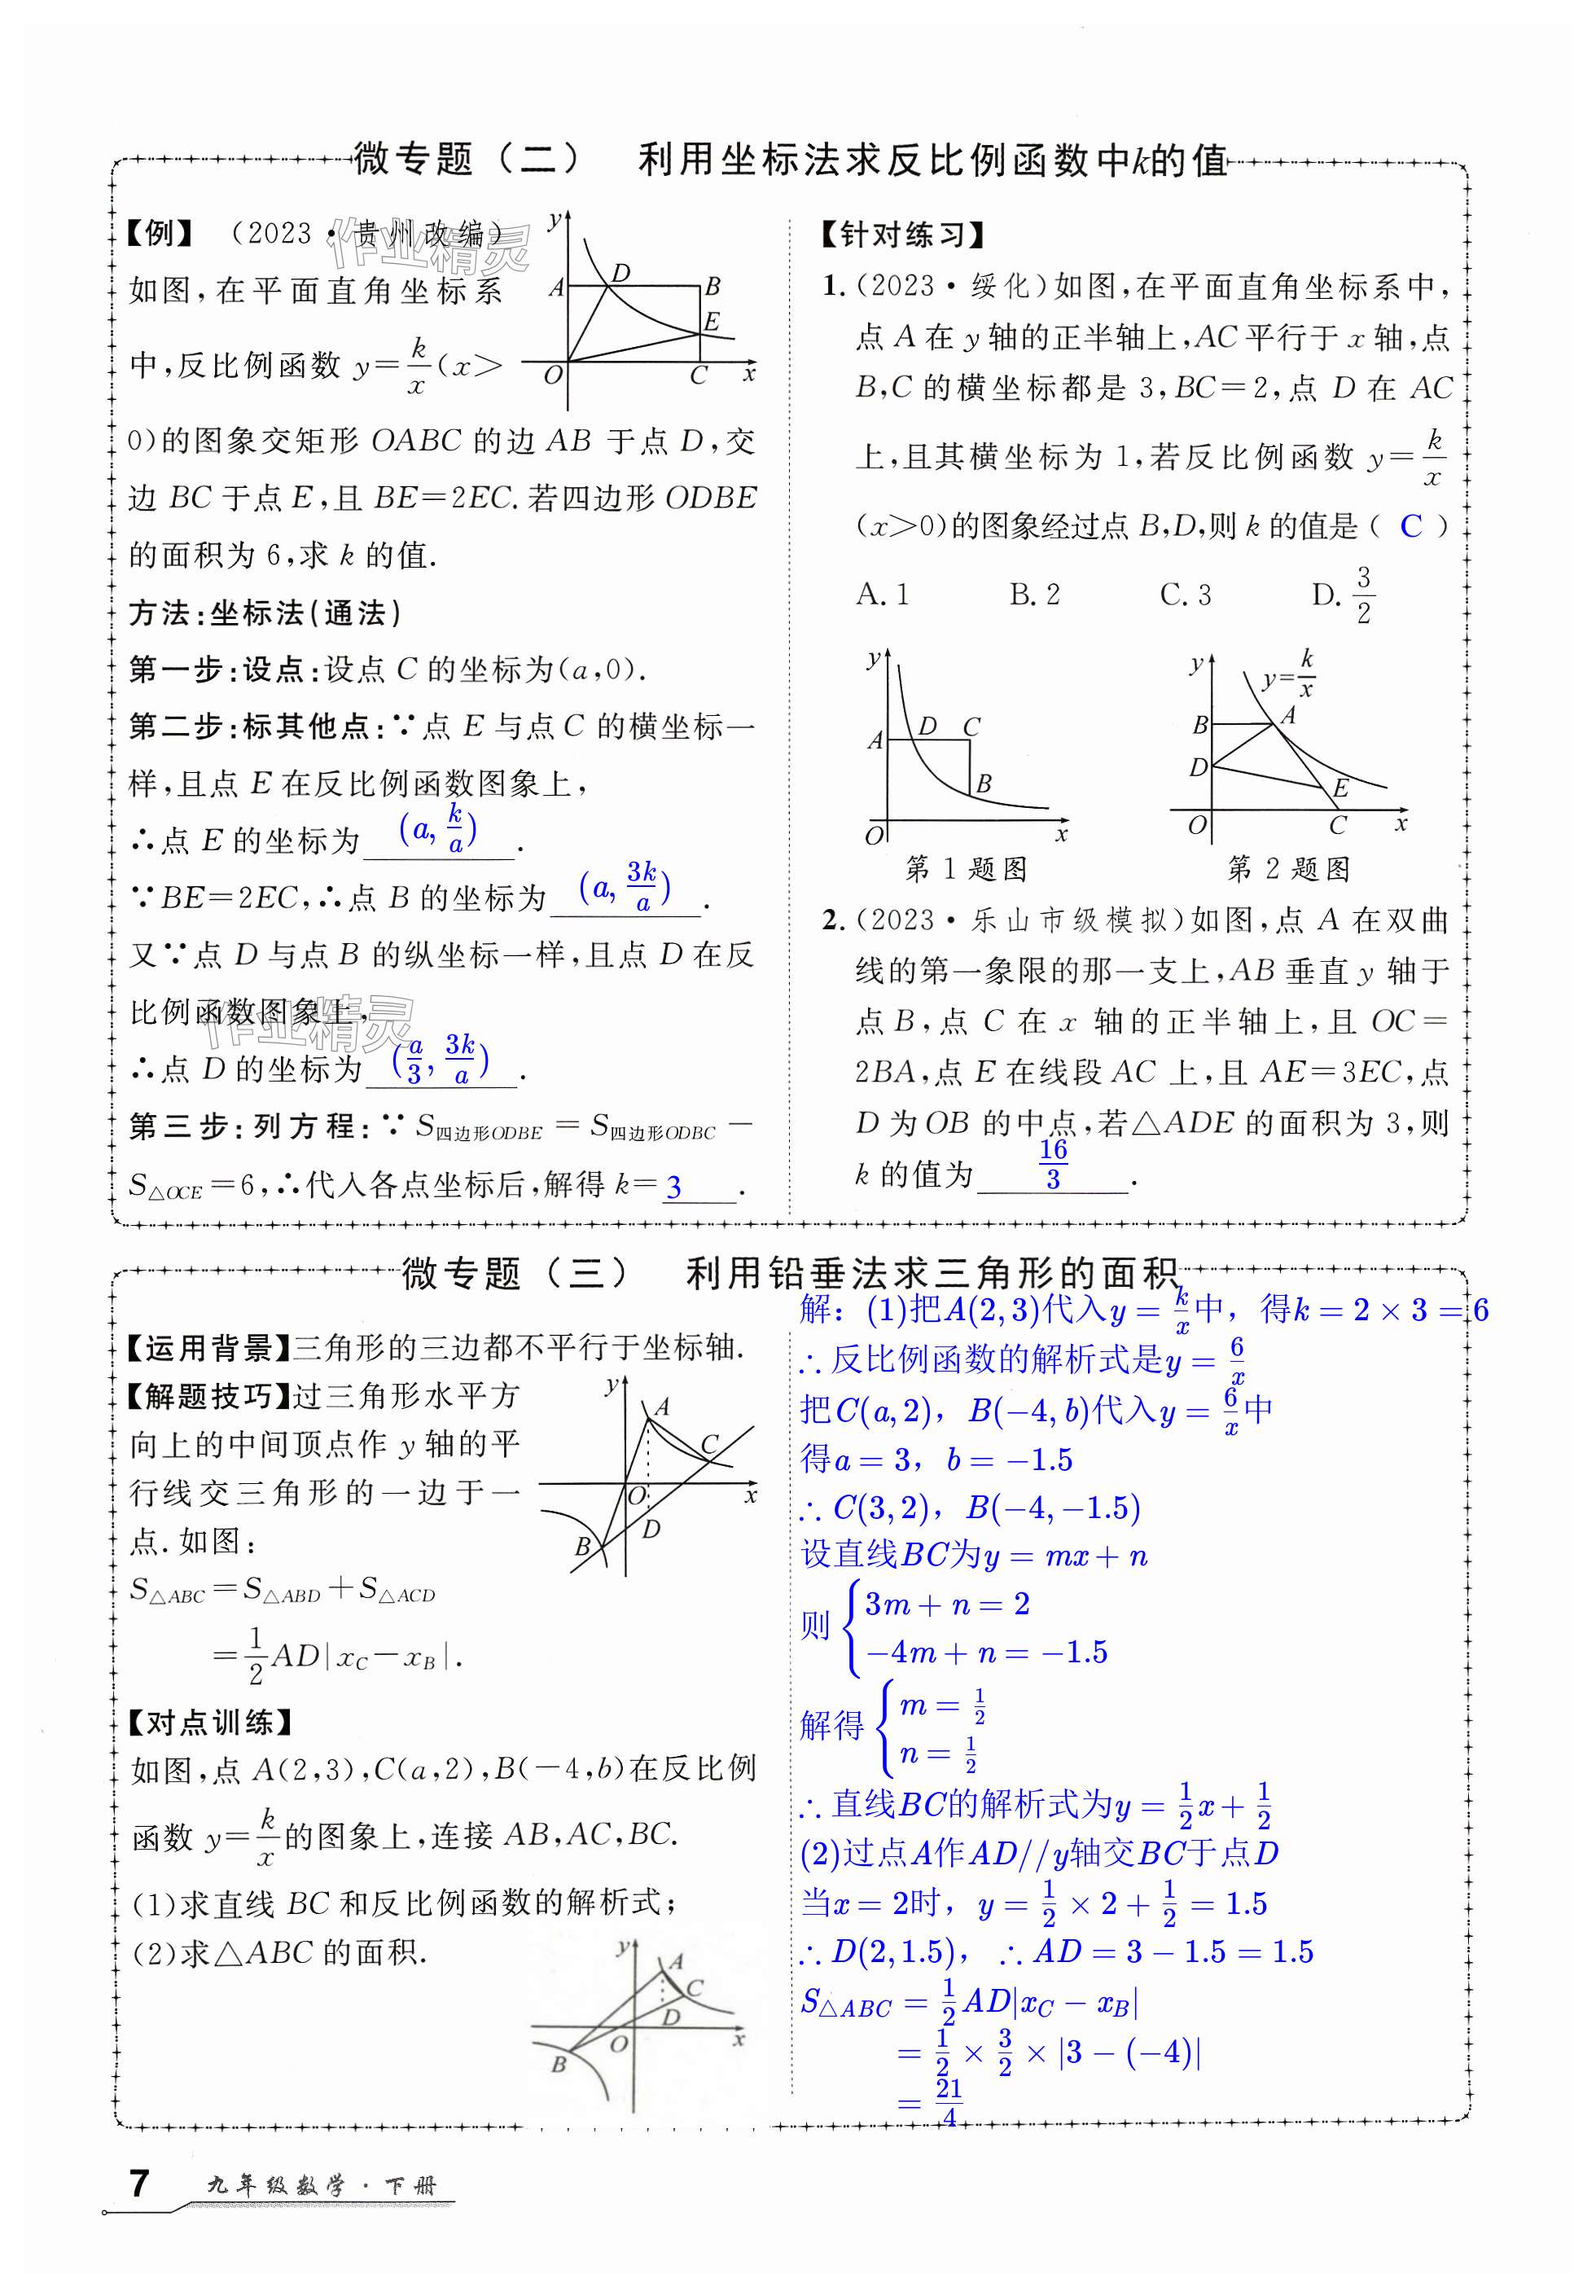 微专题（二） 利用坐标法求反比例函数中k的值
【例】（2023·贵州改编）
如图，在平面直角坐标系
中，反比例函数 y=k/x(x>
0)的图象交矩形 OABC 的边 AB 于点 D，交
边 BC 于点 E，且 BE=2EC. 若四边形 ODBE
的面积为 6，求 k 的值.
y
A
D
B
E
O
C
x
方法：坐标法（通法）
第一步：设点：设点 C 的坐标为(a,0).
第二步：标其他点：∵点 E 与点 C 的横坐标一
样，且点 E 在反比例函数图象上，
∴点 E 的坐标为 (a, k/a).
∵BE=2EC，∴点 B 的坐标为 (a, 3k/a).
又∵点 D 与点 B 的纵坐标一样，且点 D 在反
比例函数图象上，
∴点 D 的坐标为 (a/3, 3k/a).
第三步：列方程：∵ S四边形ODBE = S四边形ODBC −
S△OCE =6，∴代入各点坐标后，解得 k= 3 .
作业精灵
作业精灵
【针对练习】
1.（2023·绥化）如图，在平面直角坐标系中，
点 A 在 y 轴的正半轴上，AC 平行于 x 轴，点
B,C 的横坐标都是 3，BC=2，点 D 在 AC
上，且其横坐标为 1，若反比例函数 y=k/x
(x>0)的图象经过点 B,D，则 k 的值是（ C ）
A. 1 B. 2 C. 3 D. 3/2
y
A
D
C
B
O
x
第 1 题图
y
y=k/x
B
A
D
E
O
C
x
第 2 题图
2.（2023·乐山市级模拟）如图，点 A 在双曲
线的第一象限的那一支上，AB 垂直 y 轴于
点 B，点 C 在 x 轴的正半轴上，且 OC=
2BA，点 E 在线段 AC 上，且 AE=3EC，点
D 为 OB 的中点，若△ADE 的面积为 3，则
k 的值为 16/3 .
微专题（三） 利用铅垂法求三角形的面积
【运用背景】三角形的三边都不平行于坐标轴.
【解题技巧】过三角形水平方
向上的中间顶点作 y 轴的平
行线交三角形的一边于一
点. 如图：
y
A
C
O
x
D
B
S△ABC = S△ABD + S△ACD
=1/2 AD|xC−xB|.
【对点训练】
如图，点 A(2,3),C(a,2),B(−4,b)在反比例
函数 y=k/x的图象上，连接 AB,AC,BC.
(1)求直线 BC 和反比例函数的解析式；
(2)求△ABC 的面积.
y
A
C
D
O
x
B
解：(1)把A(2,3)代入y = k/x中，得k = 2 × 3 = 6
∴ 反比例函数的解析式是y = 6/x
把C(a,2)，B(−4,b)代入y = 6/x中
得a = 3，b = −1.5
∴ C(3,2)，B(−4,−1.5)
设直线BC为y = mx + n
则 { 3m + n = 2
−4m + n = −1.5
解得 { m = 1/2
n = 1/2
∴ 直线BC的解析式为y = 1/2x + 1/2
(2)过点A作AD//y轴交BC于点D
当x = 2时，y = 1/2 × 2 + 1/2 = 1.5
∴ D(2,1.5)，∴ AD = 3 − 1.5 = 1.5
S△ABC = 1/2AD|xC − xB|
= 1/2 × 3/2 × |3 − (−4)|
= 21/4
7 九年级数学·下册